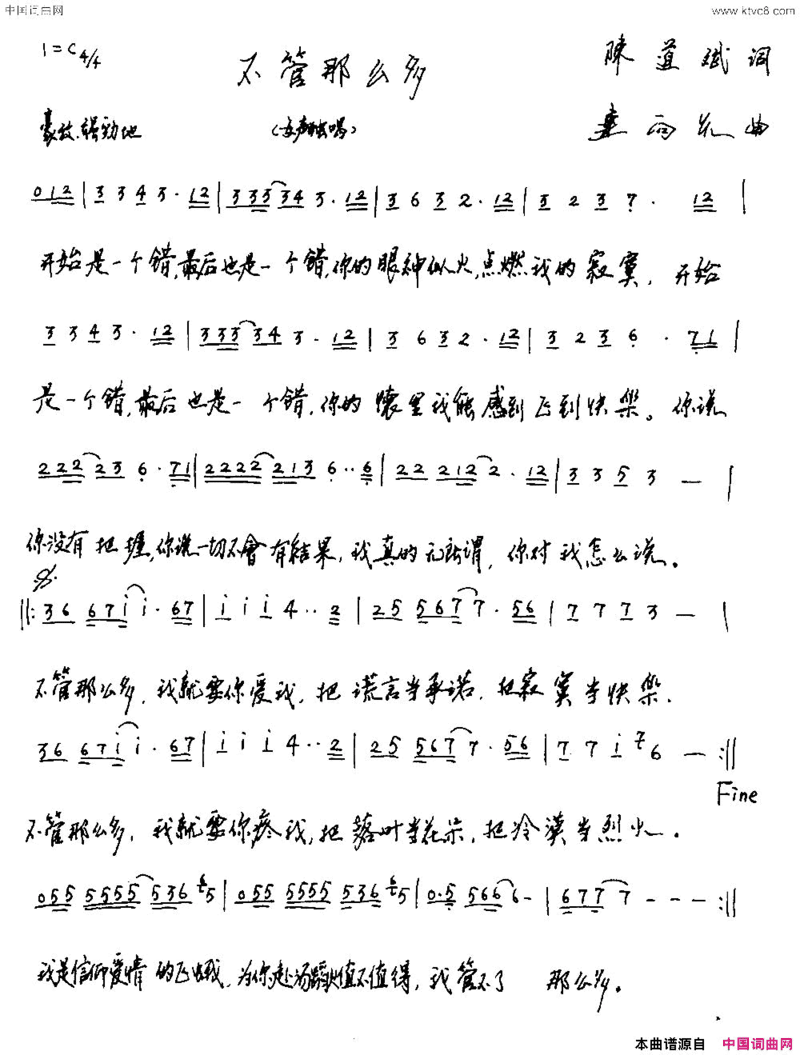 中国词曲网 www.ktvc8.com
1=C 4/4 不管那么多 陳道斌词
豪放、强劲地 (女声独唱) 雨 曲
0 1 2 | 3 3 4 3 · 1 2 | 3 3 3 3 4 3 · 1 2 | 3 6 3 2 · 1 2 | 3 2 3 7 · 1 2 |
开始是一个错,最后也是一个错,你的眼神似火,点燃我的寂寞,开始
3 3 4 3 · 1 2 | 3 3 3 3 4 3 · 1 2 | 3 6 3 2 · 1 2 | 3 2 3 6 · 7 1 |
是一个错,最后也是一个错,你的懷里我能感到飞到快樂。你说
2 2 2 2 3 6 · 7 1 | 2 2 2 2 2 1 3 6 · · 6 | 2 2 2 1 2 2 · 1 2 | 3 3 5 3 — |
你没有把握,你说一切不會有结果,我真的无所谓,你对我怎么说。
||: 3 6 6 7 i i · 6 7 | i i i 4 · · 2 | 2 5 5 6 7 7 · 5 6 | 7 7 7 3 — |
不管那么多,我就要你爱我,把谎言当承诺,把寂寞当快樂.
3 6 6 7 i i · 6 7 | i i i 4 · · 2 | 2 5 5 6 7 7 · 5 6 | 7 7 i 7 6 — :||
Fine
不管那么多,我就要你疼我,把落叶当花朵,把冷漠当烈火.
0 5 5 5 5 5 5 5 3 6 6 5 | 0 5 5 5 5 5 5 5 3 6 6 5 | 0 · 5 5 6 6 6 - | 6 7 7 7 7 - - - :||
我是信仰爱情的飞蛾,为你赴汤蹈火值不值得,我管不了 那么多。
本曲谱源自 中国词曲网